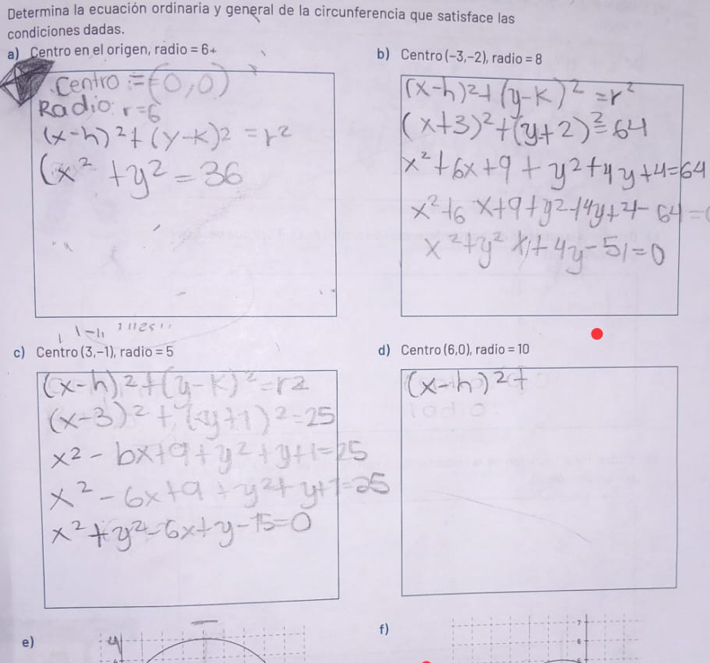 Determina la ecuación ordinaria y general de la circunferencia que satisface las
condiciones dadas.
a) Centro en el origen, radio = 6
Centro := (0,0)
Radio: r=6
(x-h)2+(y-k)2 = r2
(x2 +y2 = 36
b) Centro (-3,-2), radio = 8
(x-h)2+(y-k)2 = r2
(x+3)2+(y+2)2=64
x2+6x+9+y2+4y+4=64
x2+6 x+9+y2+4y+4-64=0
x2+y2 +4y-51=0
c) Centro (3,-1), radio = 5
(x-h)2+(y-k)2=r2
(x-3)2+(y+1)2=25
x2-6x+9+y2+y+1=25
x2-6x+9+y2+y+1=25
x2+y2-6x+y-15=0
d) Centro (6,0), radio = 10
(x-h)2+
e)
4
f)
7
6